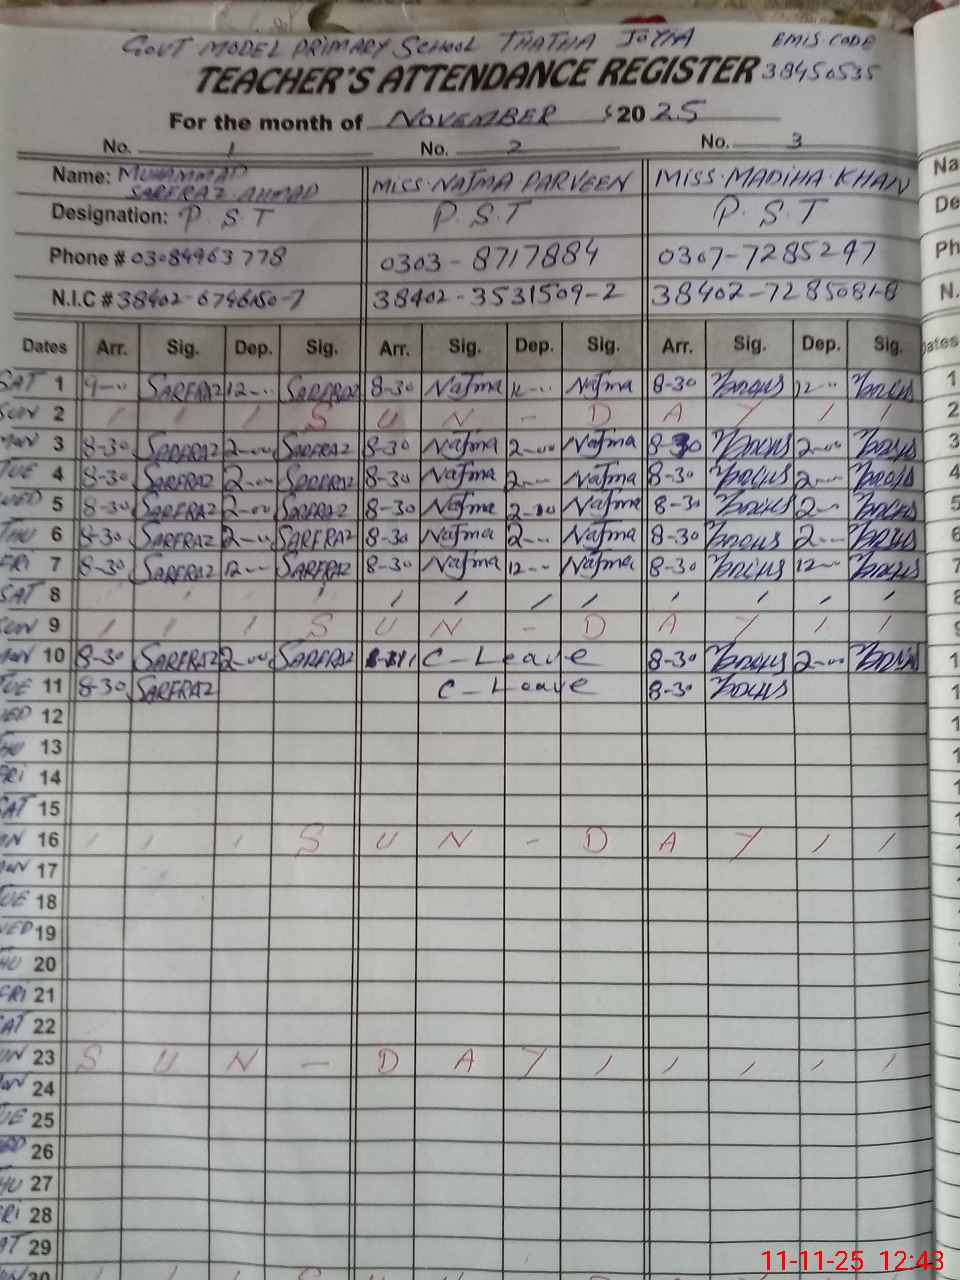 GOVT MODEL PRIMARY SCHOOL THATHA JOYIA EMIS.CODE
TEACHER'S ATTENDANCE REGISTER 38450535
For the month of NOVEMBER 2025
No. 1 No. 2 No. 3
Name: MUHAMMAD SARFRAZ AHMAD MISS.NAJMA PARVEEN MISS.MADIHA KHAN
Designation: P.S.T P.S.T P.S.T
Phone # 03084963778 0303-8717884 0307-7285297
N.I.C # 38402-6746150-7 38402-3531509-2 38402-7285081-8
Dates Arr. Sig. Dep. Sig. Arr. Sig. Dep. Sig. Arr. Sig. Dep. Sig.
SAT 1 9-00 SARFRAZ 12-00 SARFRAZ 8-30 Najma Najma 8-30 12-00
SUN 2 / / / S U N - D A Y / /
MON 3 8-30 SARFRAZ 2-00 SARFRAZ 8-30 Najma 2-00 Najma 8-30 2-00
TUE 4 8-30 SARFRAZ 2-00 SARFRAZ 8-30 Najma 2-- Najma 8-30 2--
WED 5 8-30 SARFRAZ 2-00 SARFRAZ 8-30 Najma 2-00 Najma 8-30 2--
THU 6 8-30 SARFRAZ 2-00 SARFRAZ 8-30 Najma 2-- Najma 8-30 2--
FRI 7 8-30 SARFRAZ 12-- SARFRAZ 8-30 Najma 12-- Najma 8-30 12--
SAT 8 / / / / / / / / / / / /
SUN 9 / / / S U N - D A Y / /
MON 10 8-30 SARFRAZ 2-00 SARFRAZ C-Leave 8-30 2-00
TUE 11 8-30 SARFRAZ C-Leave 8-30
WED 12
THU 13
FRI 14
SAT 15
SUN 16 / / / S U N - D A Y / /
MON 17
TUE 18
WED 19
THU 20
FRI 21
SAT 22
SUN 23 S U N - D A Y / / / / /
MON 24
TUE 25
WED 26
THU 27
FRI 28
SAT 29
SUN 30
11-11-25 12:43